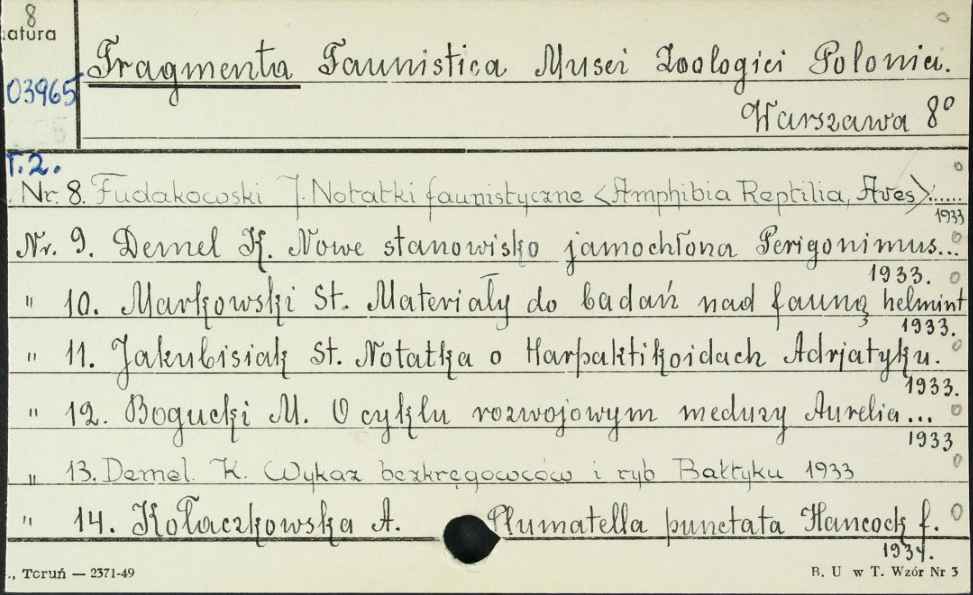 8
atura
Fragmenta Faunistica Musei Zoologici Polonici.
03965
Warszawa 8°
T.2.
Nr. 8. Fudakowski J. Notatki faunistyczne <Amphibia Reptilia, Aves>......
1933
Nr. 9. Demel K. Nowe stanowisko jamochłona Perigonimus...
1933.
" 10. Markowski St. Materiały do badań nad fauną helmint
1933.
" 11. Jakubisiak St. Notatka o Harpaktikoidach Adrjatyku.
1933.
" 12. Bogucki M. O cyklu rozwojowym meduzy Aurelia...
1933
" 13. Demel. K. Wykaz bezkręgowców i ryb Bałtyku 1933
" 14. Kołaczkowska A. Plumatella punctata Hancock f.
1934.
., Toruń — 2371-49
B. U w T. Wzór Nr 3